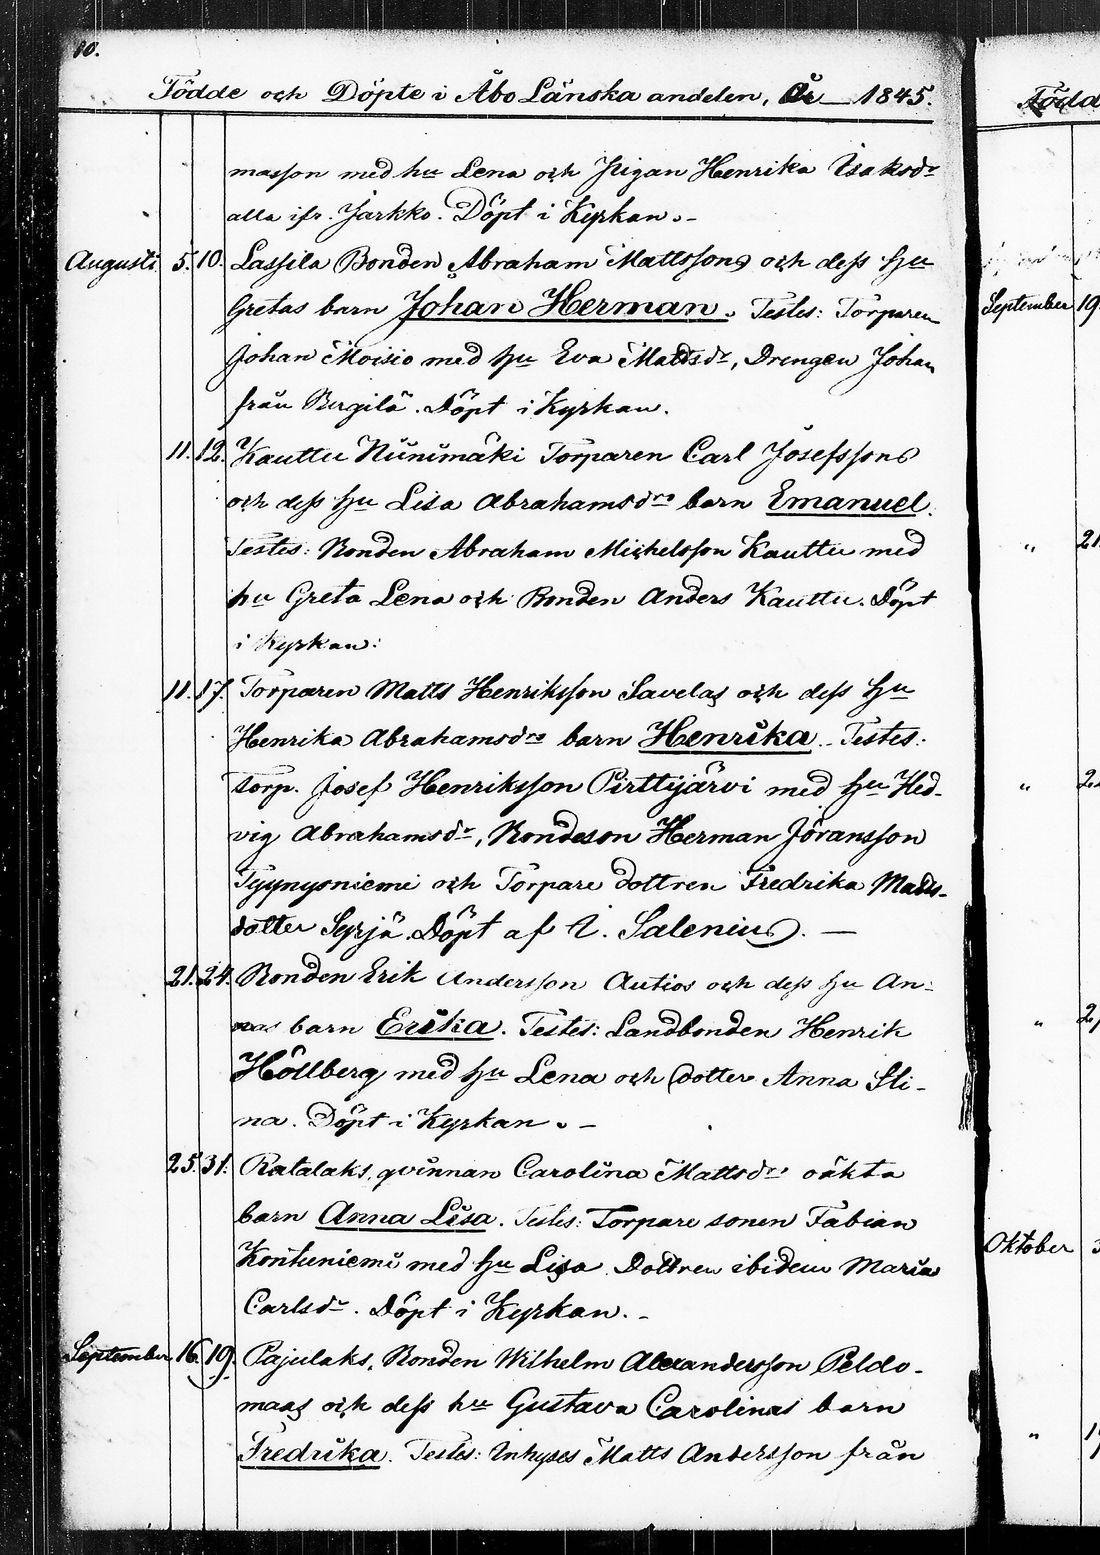 10.
Födde och Döpte i Åbo Länska andelen, År — 1845.
masson med hu Lena och Pigan Henrika Isaksdr
alla ifr. Jarkko. Döpt i Kyrkan. -
Augusti 5. 10. Lassila Bonden Abraham Mattssons och dess hu
Gretas barn Johan Herman. Testes: Torparen
Johan Moisio med hu Eva Mattsdr, Drengen Johan
från Bergilä. Döpt i Kyrkan.
11. 12. Kauttu Niinimäki Torparen Carl Josefssons
och dess hu Lisa Abrahamsdrs barn Emanuel.
Testes: Bonden Abraham Michelsson Kauttu med
hu Greta Lena och Bonden Anders Kauttu. Döpt
i Kyrkan:
11. 17. Torparen Matts Henriksson Savelas och dess hu
Henrika Abrahamsdrs barn Henrika. - Testes:
torp. Josef Henriksson Pirttijärvi med hu Hed-
vig Abrahamsdr, Bondeson Herman Jöransson
Tyynysniemi och Torpare dottren Fredrika Matts-
dotter Syrjä. Döpt af I. Salenius. —
21. 24. Bonden Erik Andersson Autios och dess hu An-
nas barn Erika. Testes: Landbonden Henrik
Höllberg med hu Lena och dotter Anna Sti-
na. Döpt i Kyrkan. -
25. 31. Ratalaks, qvinnan Carolina Mattsdrs oäkta
barn Anna Lisa. Testes: Torpare sonen Fabian
Kontuniemi med hu Lisa Dottren ibidem Maria
Carlsdr. Döpt i Kyrkan. -
September 16. 19. Pajulaks, Bonden Wilhelm Alexandersson Peldo-
maas och dess hu Gustava Carolinas barn
Fredrika. Testes: Inhyses Matts Andersson från
Född
September 19.
„ 21.
„
„
Oktober
„